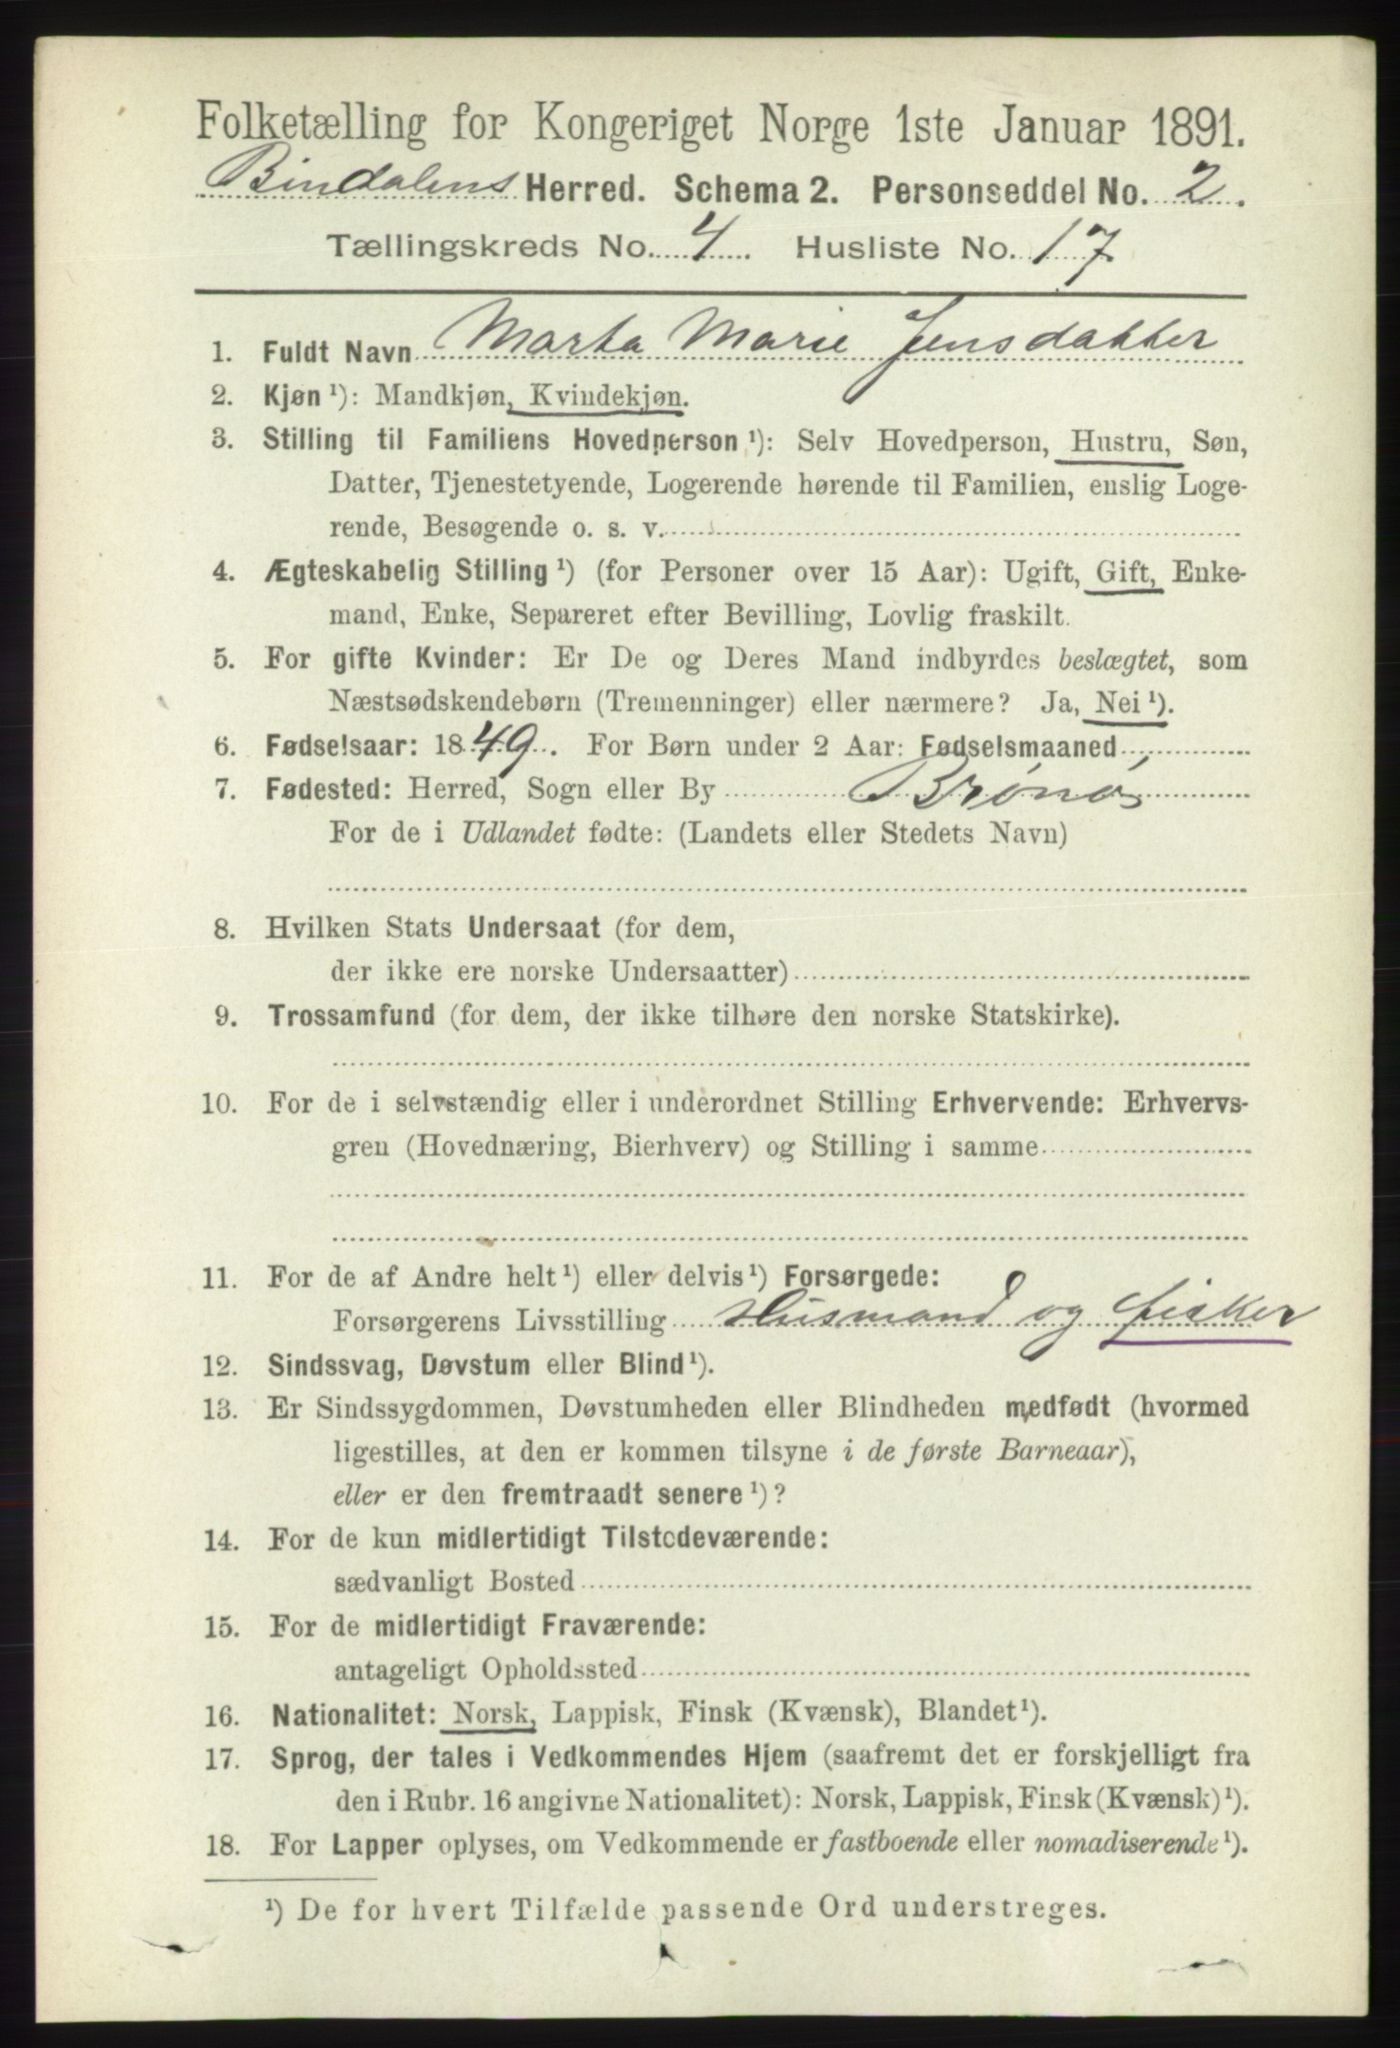 Folketælling for Kongeriget Norge 1ste Januar 1891.
Bindalens Herred. Schema 2. Personseddel No. 2.
Tællingskreds No. 4. Husliste No. 17
1. Fuldt Navn Marta Marie Jensdatter
2. Kjøn ¹): Mandkjøn, Kvindekjøn.
3. Stilling til Familiens Hovedperson ¹): Selv Hovedperson, Hustru, Søn,
Datter, Tjenestetyende, Logerende hørende til Familien, enslig Loge-
rende, Besøgende o. s. v.
4. Ægteskabelig Stilling ¹) (for Personer over 15 Aar): Ugift, Gift, Enke-
mand, Enke, Separeret efter Bevilling, Lovlig fraskilt.
5. For gifte Kvinder: Er De og Deres Mand indbyrdes beslægtet, som
Næstsødskendebørn (Tremenninger) eller nærmere? Ja, Nei ¹).
6. Fødselsaar: 1849. For Børn under 2 Aar: Fødselsmaaned
7. Fødested: Herred, Sogn eller By Brønø
For de i Udlandet fødte: (Landets eller Stedets Navn)
8. Hvilken Stats Undersaat (for dem,
der ikke ere norske Undersaatter)
9. Trossamfund (for dem, der ikke tilhøre den norske Statskirke).
10. For de i selvstændig eller i underordnet Stilling Erhvervende: Erhvervs-
gren (Hovednæring, Bierhverv) og Stilling i samme
11. For de af Andre helt ¹) eller delvis ¹) Forsørgede:
Forsørgerens Livsstilling Husmand og fisker
12. Sindssvag, Døvstum eller Blind ¹).
13. Er Sindssygdommen, Døvstumheden eller Blindheden medfødt (hvormed
ligestilles, at den er kommen tilsyne i de første Barneaar),
eller er den fremtraadt senere ¹)?
14. For de kun midlertidigt Tilstedeværende:
sædvanligt Bosted
15. For de midlertidigt Fraværende:
antageligt Opholdssted
16. Nationalitet: Norsk, Lappisk, Finsk (Kvænsk), Blandet ¹).
17. Sprog, der tales i Vedkommendes Hjem (saafremt det er forskjelligt fra
den i Rubr. 16 angivne Nationalitet): Norsk, Lappisk, Finsk (Kvænsk) ¹).
18. For Lapper oplyses, om Vedkommende er fastboende eller nomadiserende ¹).
¹) De for hvert Tilfælde passende Ord understreges.